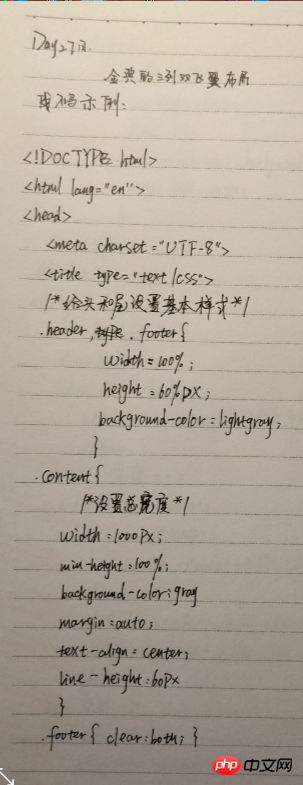 Day27日.
金典的三列双飞翼布局
代码示例:
<!DOCTYPE html>
<html lang="en">
<head>
<meta charset="UTF-8">
<title type="text/css">
/*给头和尾设置基本样式*/
.header, .footer{
width=100%;
height=60%px;
background-color=lightgray;
}
.content{
/*设置总宽度*/
width=1000px;
min-height=100%;
background-color:gray
margin=auto;
text-align=center;
line-height:60px
}
.footer{ clear:both; }
php中文网